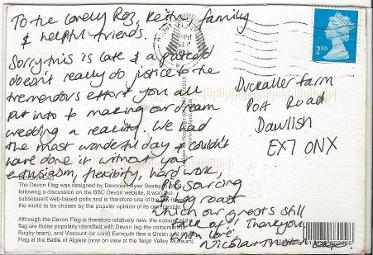 To the lovely Roz, Keith, family
& helpful friends.
Sorry this is late & a postcard
doesn't really do justice to the
tremendous effort you all
put into to making our dream
wedding a reality. We had
the most wonderful day & couldn't
have done it without your
enthusiasm, flexibility, hard work,
sourcing
& egg roast
which our guests still
talk of! Thankyou
with love,
2ND
farm
Road
Dawlish
EX7 0NX
The Devon Flag was designed by Devonian Ryan Sealey
following a discussion on the BBC Devon website. It won
subsequent web-based polls and is therefore one of the
the world to be chosen by the popular opinion of its own people.
Although the Devon Flag is therefore relatively new, the colours of the
flag are those popularly identified with Devon (eg the colours of
Rugby team), and Viscount (or Lord) Exmouth flew a Green and White
Flag at the Battle of Algiers (now on view at the Teign Valley Museum).